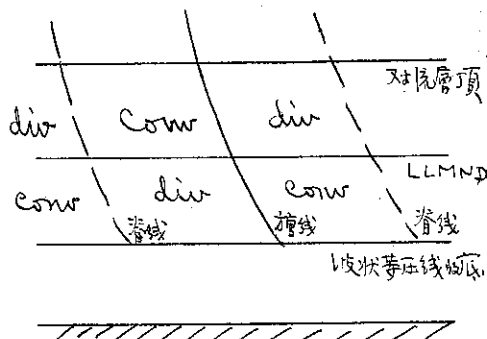 对流層頂
div conv div
LLMND
conv div conv
脊线 槽线 脊线
波状等压线的底